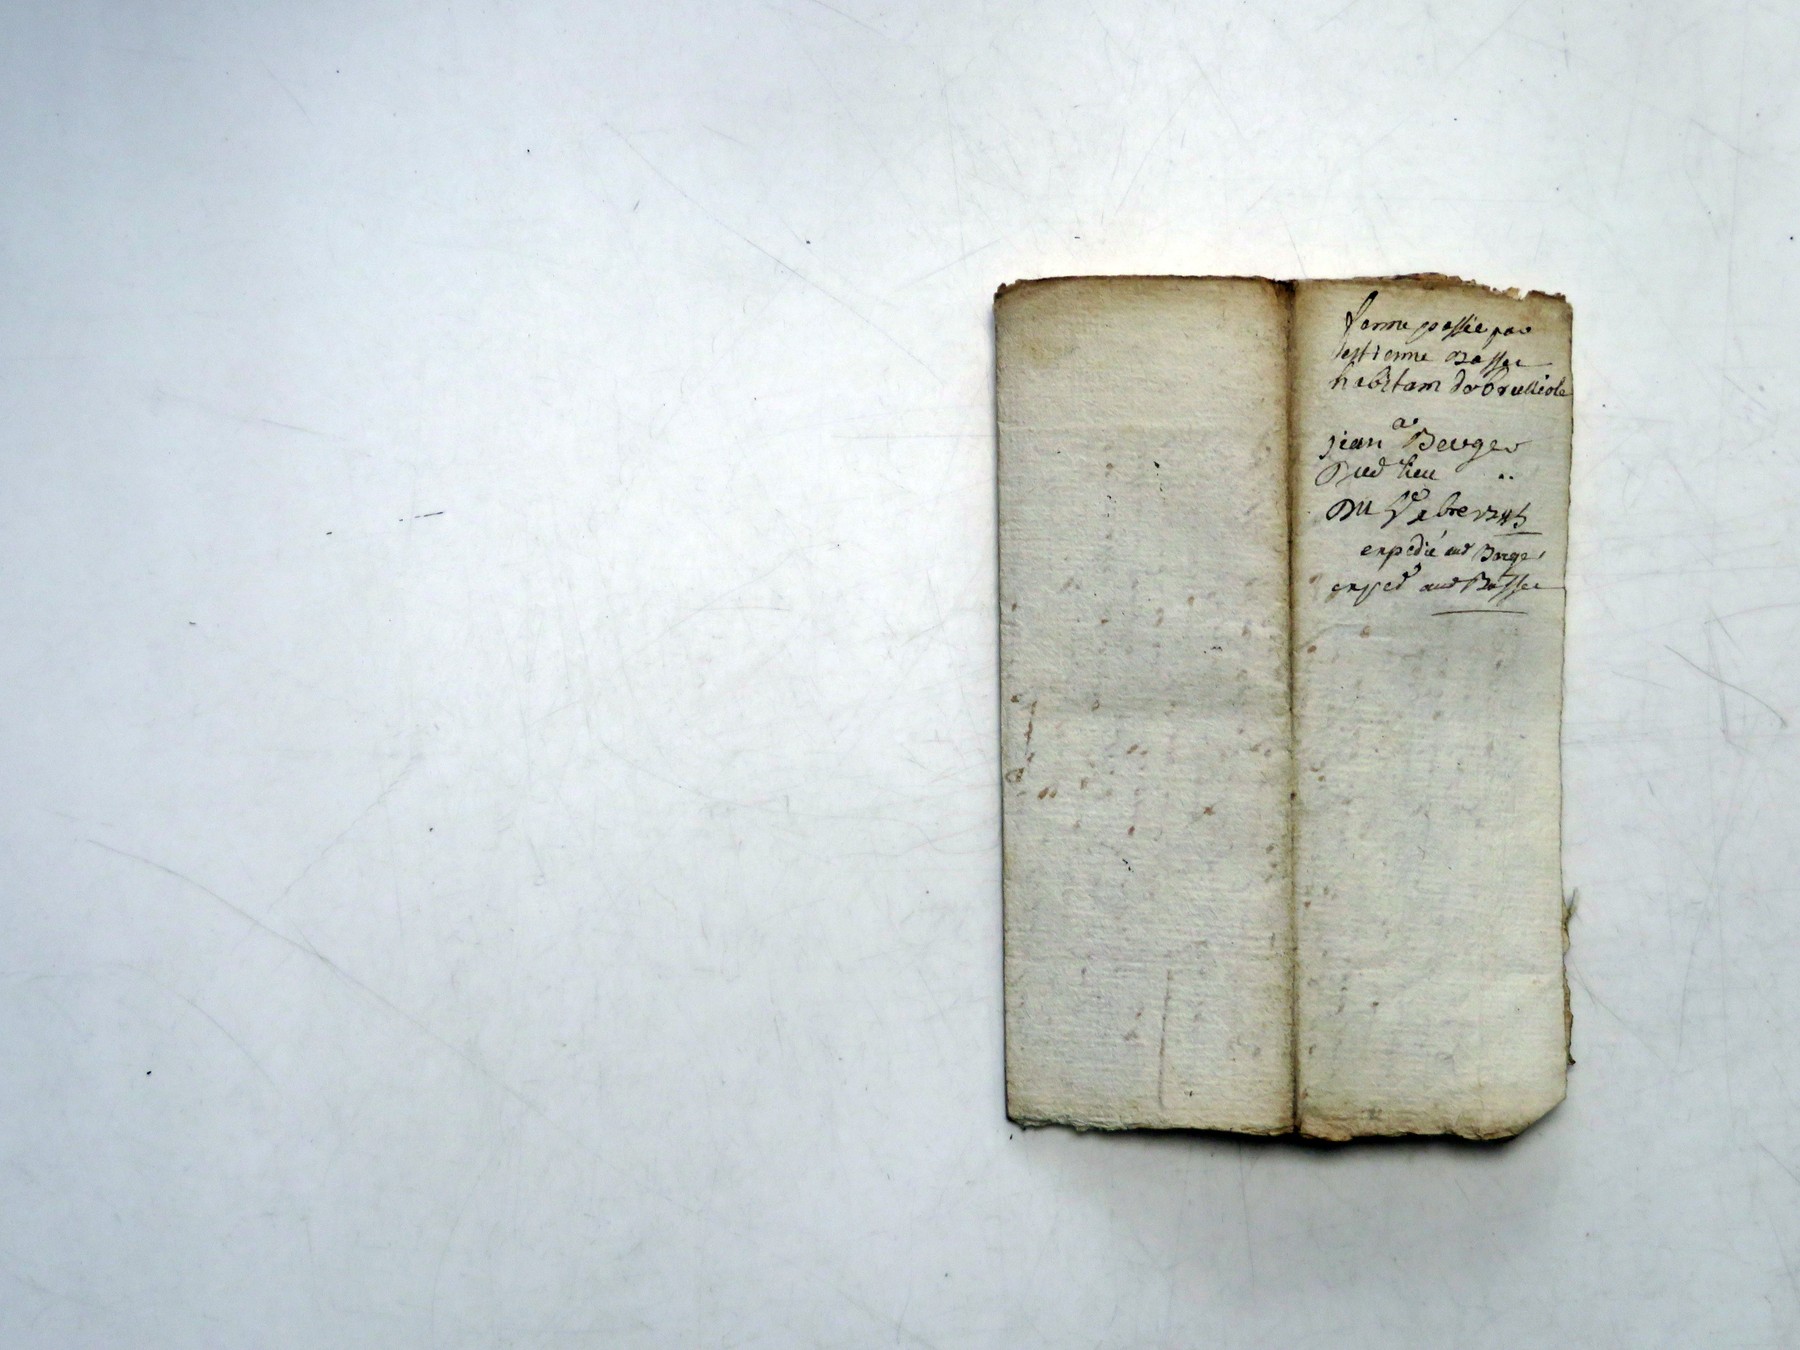 ferme passée par
estienne Basse
habitam dobrulliole
a
jean Berger
Dud lieu
Du 9bre 1745
expedié aud Berger
exped aud Basse